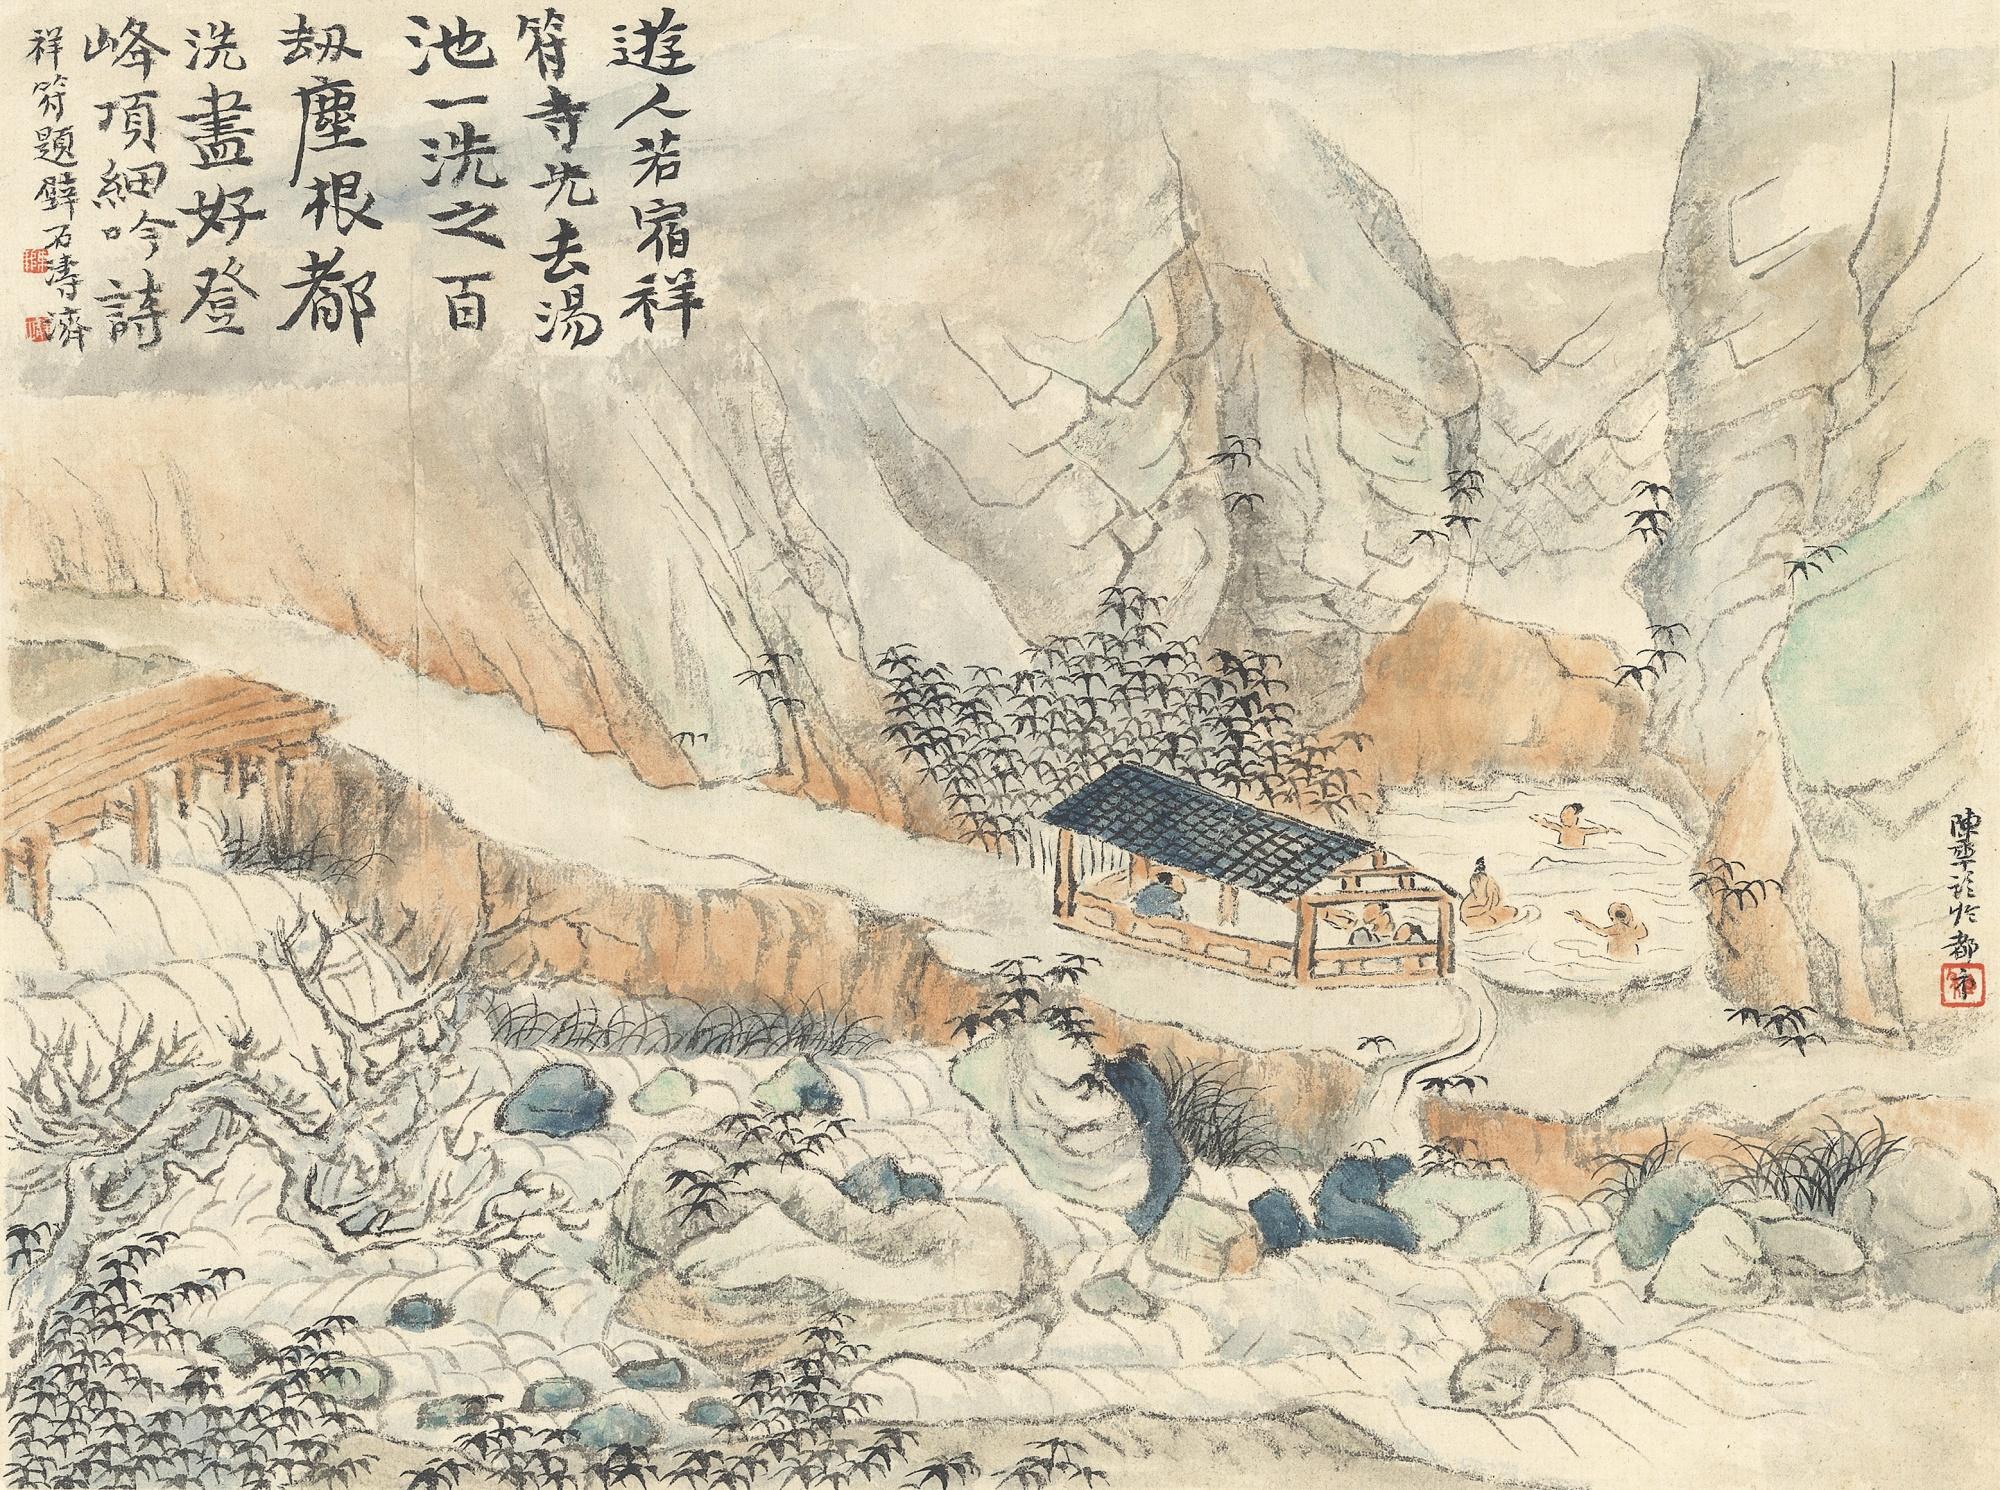 遊人若宿祥
符寺先去湯
池一洗之百
劫塵根都
洗盡好登
峰項細吟詩
祥符題壁石濤濟
陳平於都市